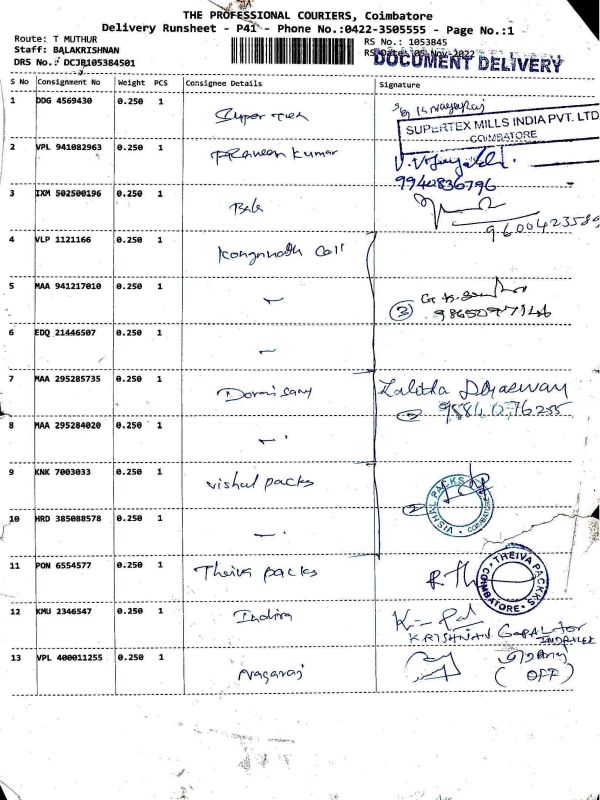 THE PROFESSIONAL COURIERS, Coimbatore
Delivery Runsheet - P41 - Phone No.:0422-3505555 - Page No.:1
Route: T MUTHUR
RS No.: 1053845
Staff: BALAKRISHNAN
RS Date: 05 Nov 2022
DOCUMENT DELIVERY
DRS No.: DCJB105384501
S No Consignment No Weight PCS Consignee Details Signature
1 DDG 4569430 0.250 1 Super Tex
SUPERTEX MILLS INDIA PVT. LTD
COIMBATORE
2 VPL 941082963 0.250 1 Praveen Kumar
9940836796
3 IXM 502500196 0.250 1 Bala
9600423589
4 VLP 1121166 0.250 1
5 MAA 941217010 0.250 1 〃
6 EDQ 21446507 0.250 1 〃
7 MAA 295285735 0.250 1 Lalitha
9884076255
8 MAA 295284020 0.250 1 〃
9 KNK 7003033 0.250 1 Vishal packs
VISHAL PACKS COIMBATORE
10 HRD 385088578 0.250 1 〃
11 PON 6554577 0.250 1 Theiva packs
THEIVA PACKS COIMBATORE
12 KMU 2346547 0.250 1 Indira
KRISHNAN
13 VPL 400011255 0.250 1 Nagaraj
(OFF)